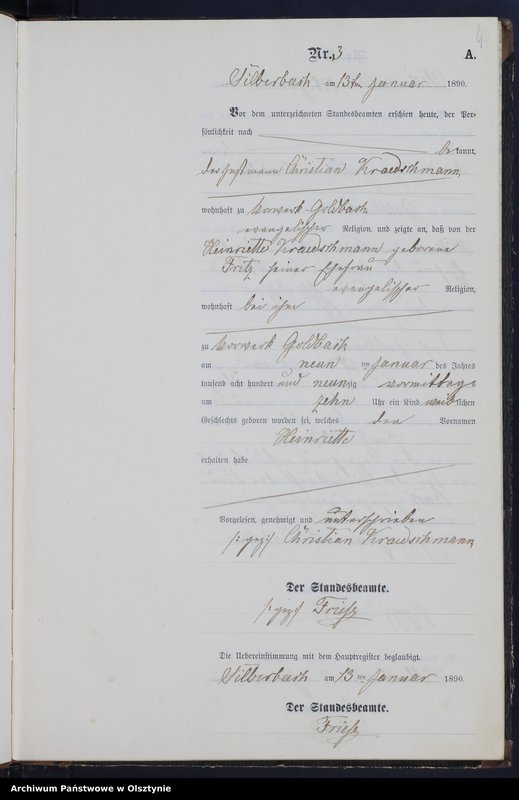 4
Nr. 3 A.
Silberbach am 13ten Januar 1890.
Vor dem unterzeichneten Standesbeamten erschien heute, der Per-
sönlichkeit nach
bekannt,
der Christian Kraedschmann
wohnhaft zu Vorwerk Goldbach
evangelischer Religion, und zeigte an, daß von der
Heinriette Kraedschmann geborene
Fritz seiner Ehefrau
evangelischer Religion,
wohnhaft bei ihm
zu Vorwerk Goldbach
am neun ten Januar des Jahres
tausend acht hundert und neunzig vormittags
um zehn Uhr ein Kind weiblichen
Geschlechts geboren worden sei, welches den Vornamen
Heinriette
erhalten habe
Vorgelesen, genehmigt und unterschrieben
gez: Christian Kraedschmann
Der Standesbeamte.
gez: Friese
Die Uebereinstimmung mit dem Hauptregister beglaubigt.
Silberbach am 13 ten Januar 1890.
Der Standesbeamte.
Friese
Archiwum Państwowe w Olsztynie